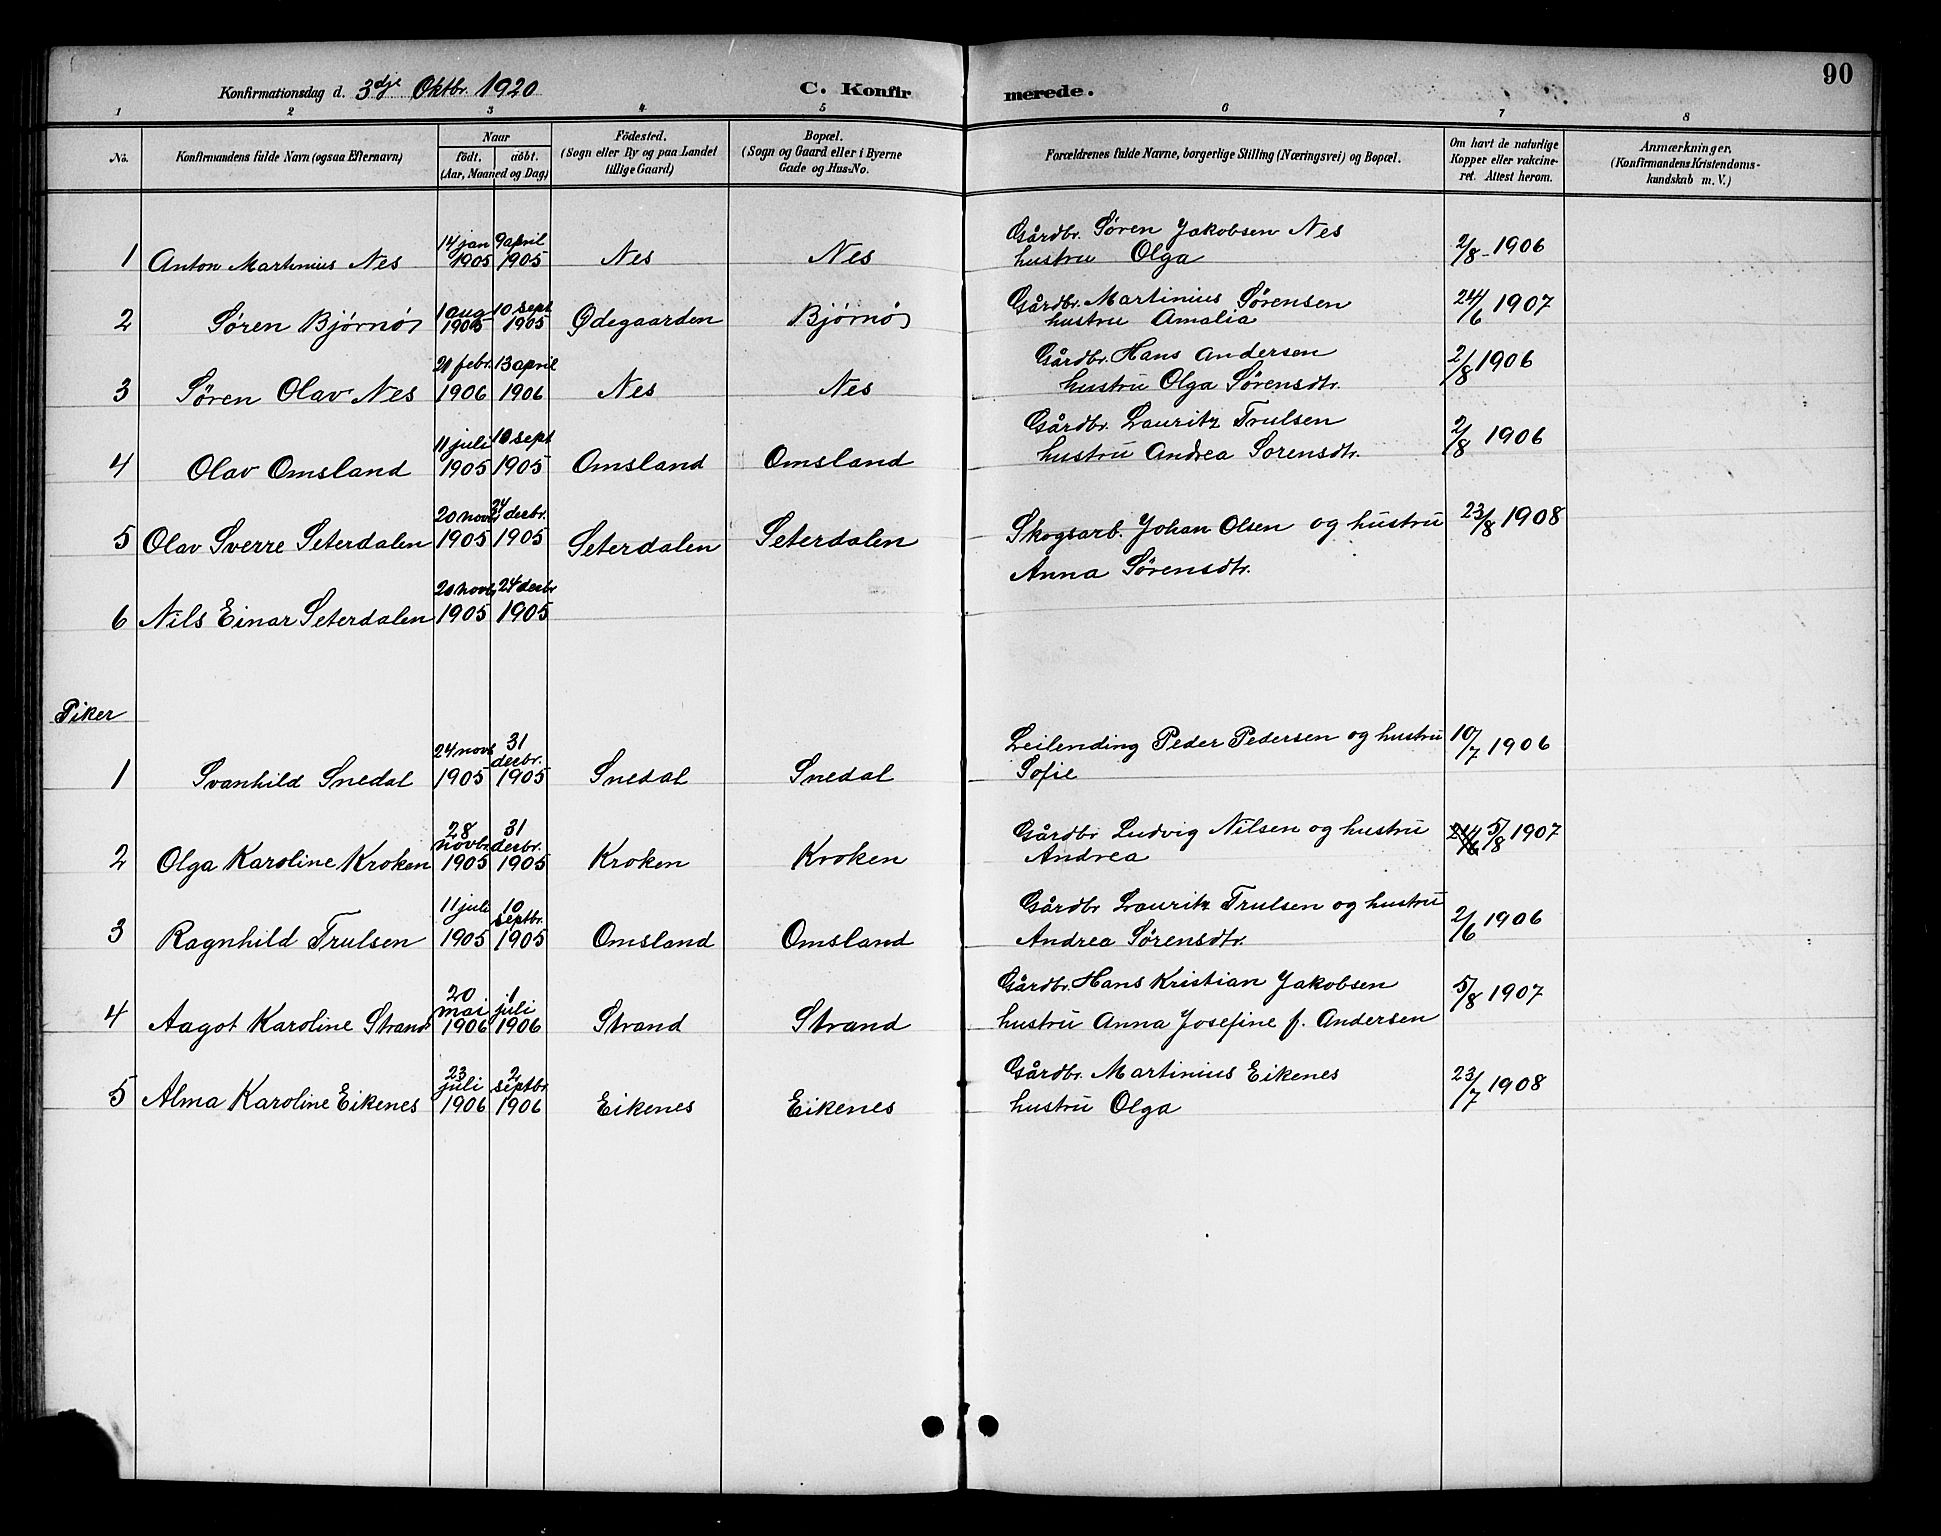 90
Konfirmationsdag d. 3dje Oktbr. 1920 C. Konfirmerede.
1 2 3 4 5 6 7 8
No. Konfirmandens fulde Navn (ogsaa Efternavn) Naar födt. döbt. (Aar, Maaned og Dag) Födested. (Sogn eller By og paa Landet tillige Gaard) Bopæl. (Sogn og Gaard eller i Byerne Gade og Hus-No. Forældrenes fulde Navne, borgerlige Stilling (Næringsvei) og Bopæl. Om havt de naturlige Kopper eller vakcineret. Attest herom. Anmærkninger. (Konfirmandens Kristendomskundskab m. V.)
1 Anton Martinius Nes 14 jan 1905 9 april 1905 Nes Nes Gårdbr. Søren Jakobsen Nes hustru Olga 2/8 - 1906
2 Søren Bjørnø 1 aug 1905 10 sept 1905 Ødegaarden Bjørnø Gårdbr. Martinius Sørensen hustru Amalia 24/6 1907
3 Søren Olav Nes 21 febr. 1906 13 april 1906 Nes Nes Gårdbr. Hans Andersen hustru Olga Sørensdtr. 2/8 1906
4 Olav Omsland 11 juli 1905 10 sept 1905 Omsland Omsland Gårdbr. Lauritz Trulsen hustru Andrea Sorensdtr. 2/8 1906
5 Olav Sverre Seterdalen 20 novb. 1905 24 desbr. 1905 Seterdalen Seterdalen Skogsarb. Johan Olsen og hustru Anna Sørensdtr. 23/8 1908
6 Nils Einar Seterdalen 20 novb. 1905 24 desbr 1905
Piker
1 Svanhild Snedal 24 novb 1905 31 desbr. 1905 Snedal Snedal Leilending Peder Pedersen og hustru Sofie 10/7 1906
2 Olga Karoline Kroken 28 novbr. 1905 31 desbr. 1905 Kroken Kroken Gårdbr Ludvig Nilsen og hustru Andrea 24/6 5/8 1907
3 Ragnhild Trulsen 11 juli 1905 10 septbr. 1905 Omsland Omsland Gårdbr Lauritz Trulsen og hustru Andrea Sørensdtr. 2/6 1906
4 Aagot Karoline Strand 20 mai 1906 1 juli 1906 Strand Strand Gårdbr. Hans Kristian Jakobsen hustru Anna Josefine f. Andersen 5/8 1907
5 Alma Karoline Eikenes 23 juli 1906 2 septbr. 1906 Eikenes Eikenes Gårdbr. Martinius Eikenes hustru Olga 23/7 1908